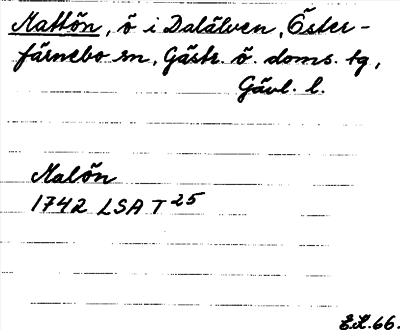 Mattön, ö i Dalälven, Öster-
färnebo sn, Gästr. ö. doms. tg,
Gävl. l.
Malön
1742 LSA T 25
E.L. 66.